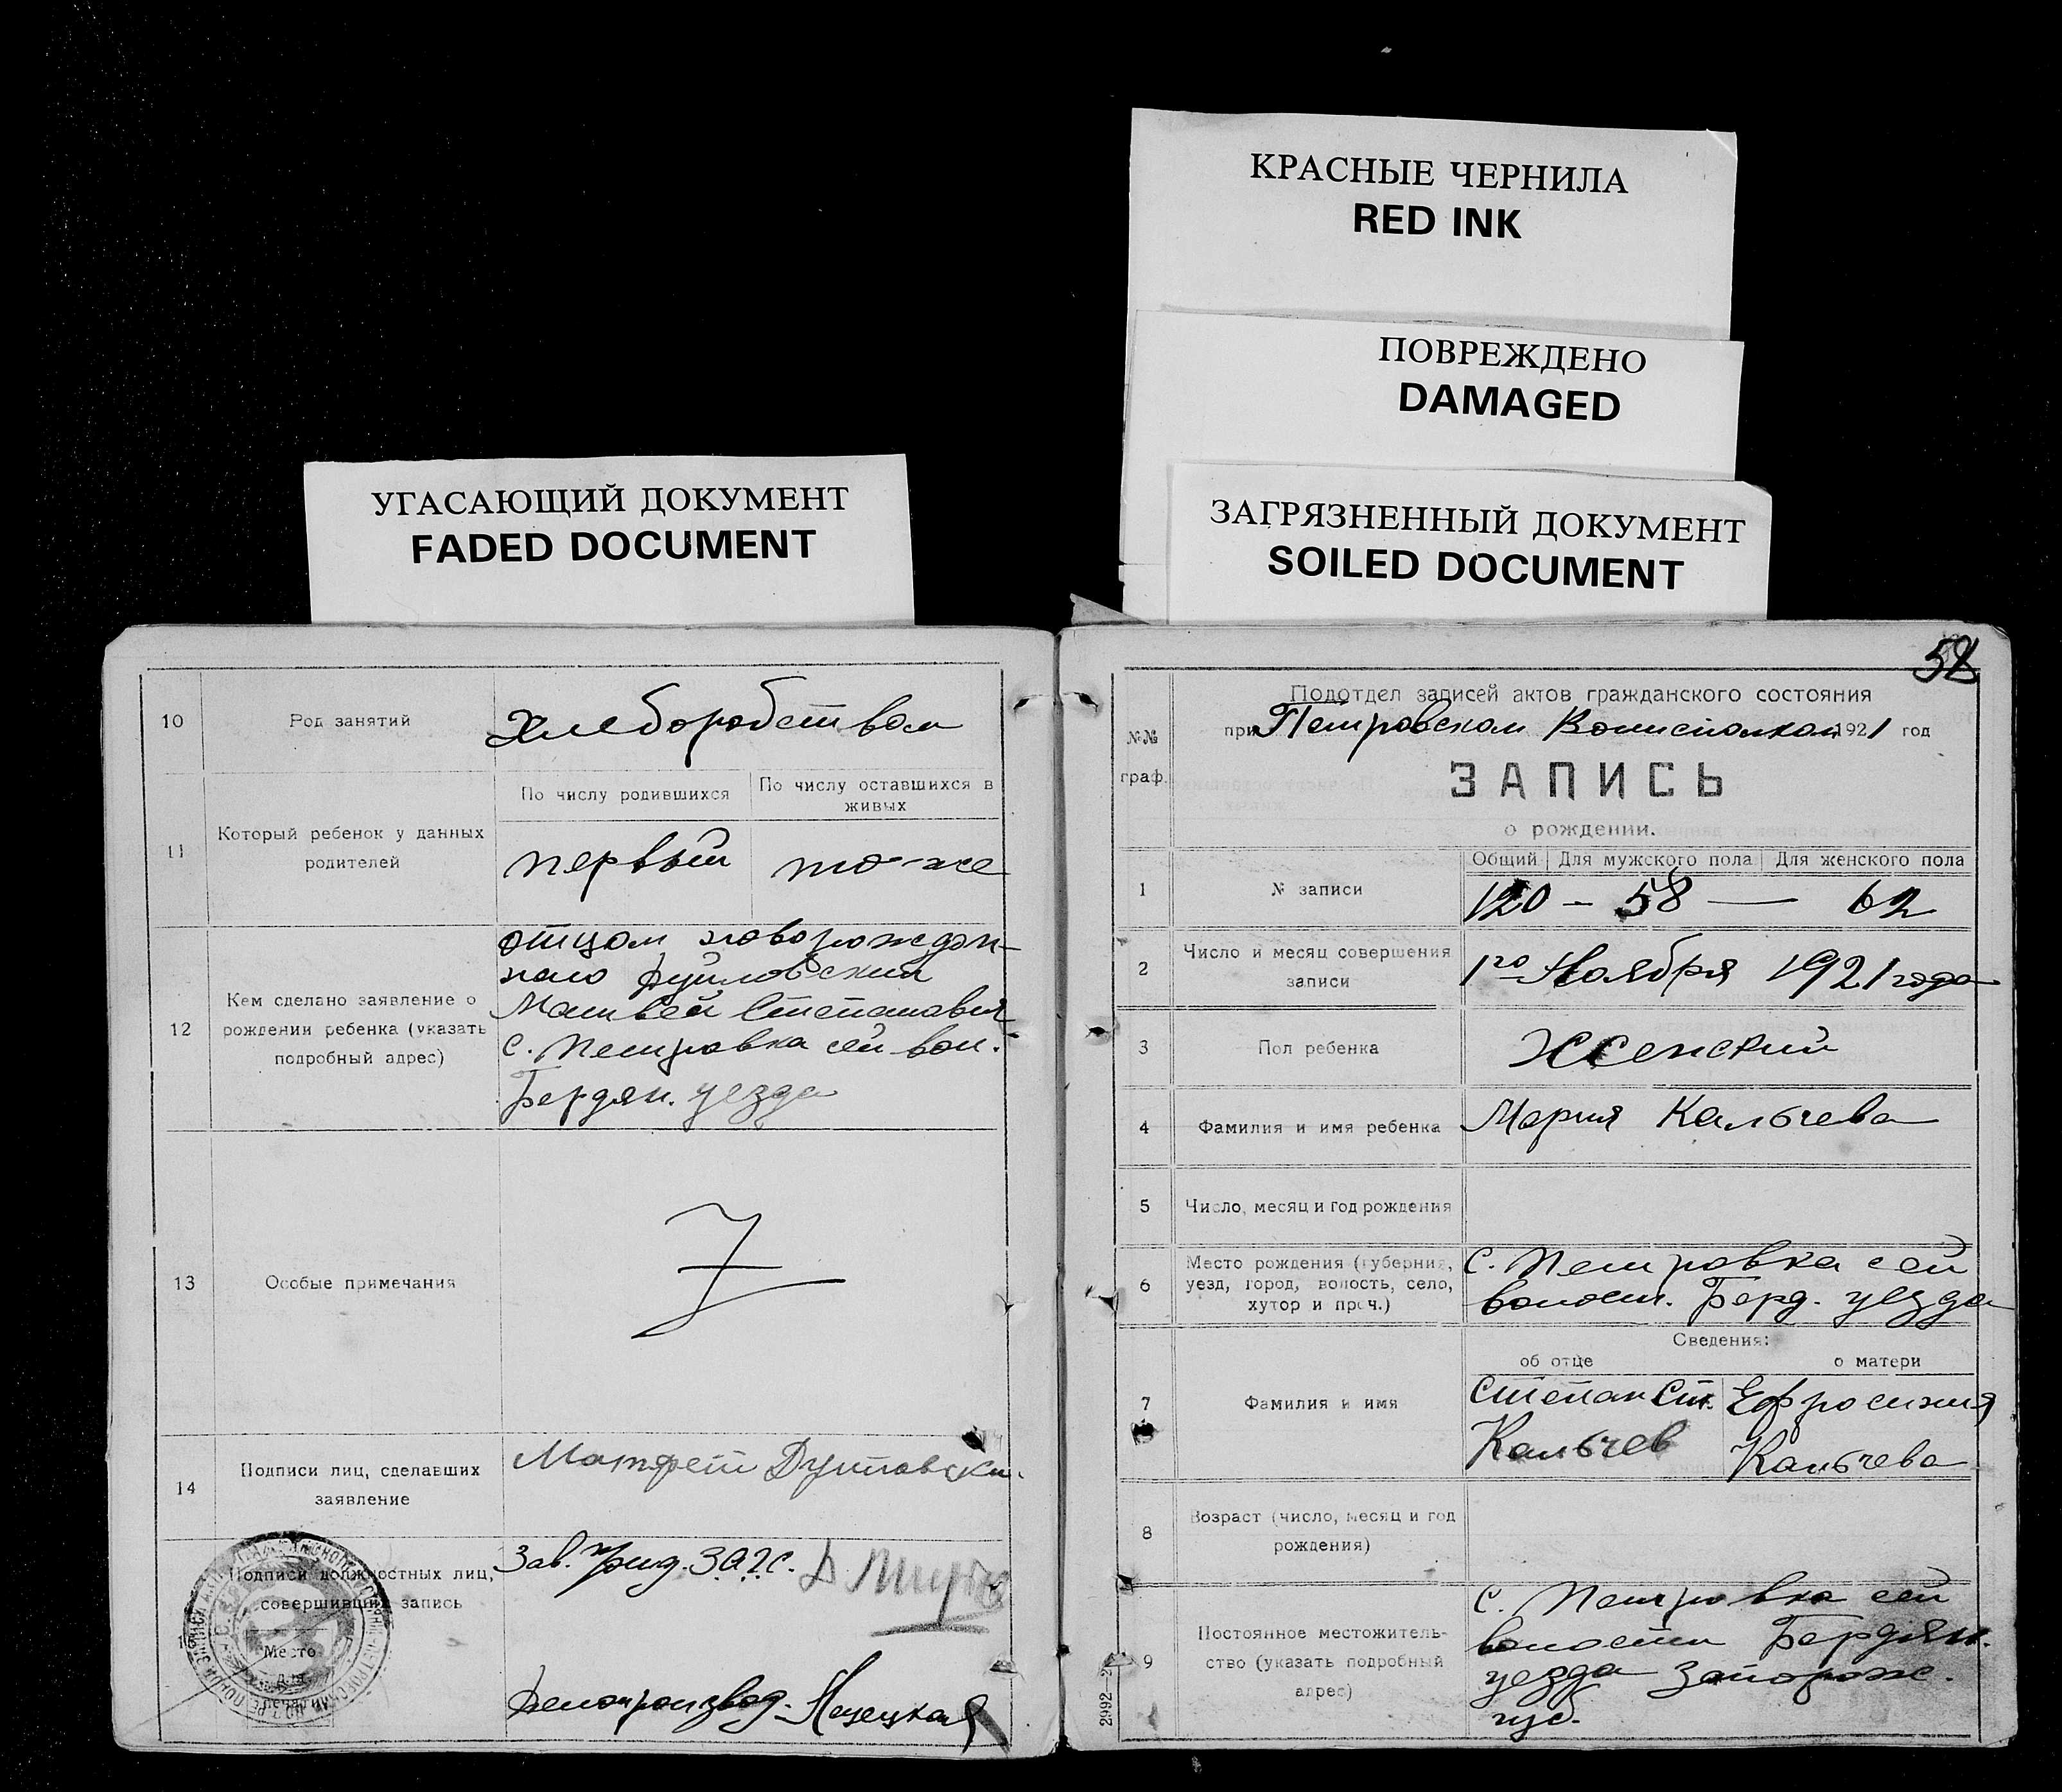 КРАСНЫЕ ЧЕРНИЛА
RED INK
ПОВРЕЖДЕНО
DAMAGED
УГАСАЮЩИЙ ДОКУМЕНТ
FADED DOCUMENT
ЗАГРЯЗНЕННЫЙ ДОКУМЕНТ
SOILED DOCUMENT
10
Род занятий
Хлеборобством
11
Который ребенок у данных
родителей
По числу родившихся
По числу оставшихся в
живых
первый
то-же
12
Кем сделано заявление о
рождении ребенка (указать
подробный адрес)
отцом новорожден-
ного
Матвей Степанович
с. Петровка сей вол.
Бердян. уезда
13
Особые примечания
14
Подписи лиц, сделавших
заявление
Подписи должностных лиц,
совершивших запись
Место
для
Зав. ЗАГС.
Делопроизвод.
58
Подотдел записей актов гражданского состояния
при Петровском Волисполком 1921 год
№№
граф.
ЗАПИСЬ
о рождении.
1
№ записи
Общий Для мужского пола Для женского пола
120 – 58 — 62
2
Число и месяц совершения
записи
1го Ноября 1921 года
3
Пол ребенка
Женский
4
Фамилия и имя ребенка
Мария Кальчева
5
Число, месяц и год рождения
6
Место рождения (губерния,
уезд, город, волость, село,
хутор и проч.)
с. Петровка сей
волост. Берд. уезда
Сведения:
об отце
о матери
7
Фамилия и имя
Степан Ст.
Кальчев
Ефросиния
Кальчева
8
Возраст (число, месяц и год
рождения)
9
Постоянное местожитель-
ство (указать подробный
адрес)
с. Петровка сей
волости Бердян.
уезда Запорож.
губ.
2992—2